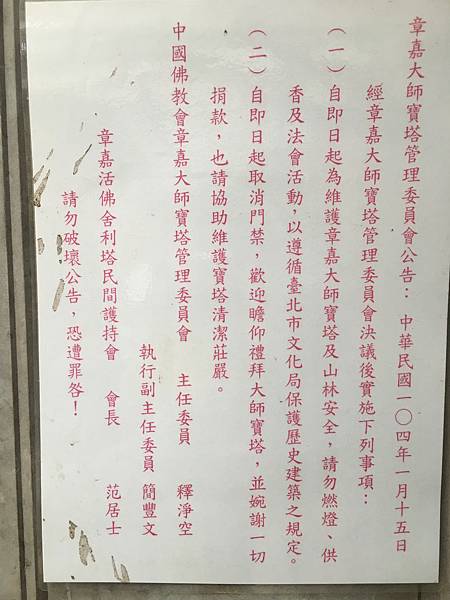 章嘉大師寶塔管理委員會公告：　中華民國一〇四年一月十五日
經章嘉大師寶塔管理委員會決議後實施下列事項：
（一）自即日起為維護章嘉大師寶塔及山林安全，請勿燃燈、供
香及法會活動，以遵循臺北市文化局保護歷史建築之規定。
（二）自即日起取消門禁，歡迎瞻仰禮拜大師寶塔，並婉謝一切
捐款，也請協助維護寶塔清潔莊嚴。
中國佛教會章嘉大師寶塔管理委員會　主任委員　釋淨空
執行副主任委員　簡豐文
章嘉活佛舍利塔民間護持會　會長　范居士
請勿破壞公告，恐遭罪咎！